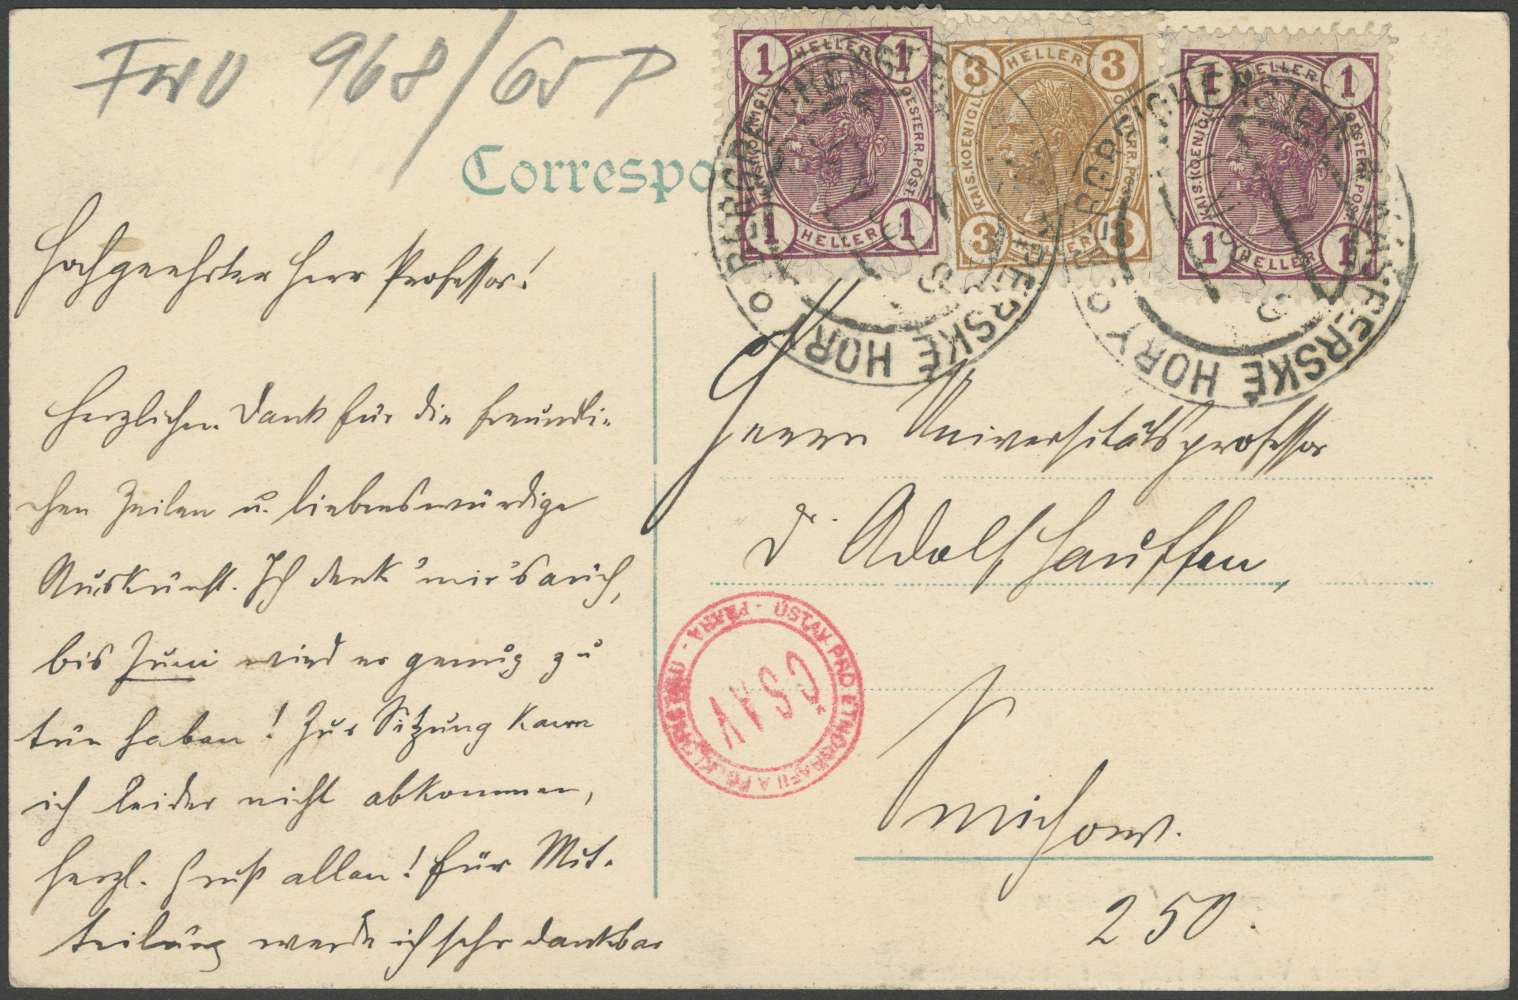 FWU 968/65 P
Correspo
1 HELLER 1
KAIS. KOENIGL. OESTERR. POST
1 HELLER 1
3 HELLER 3
KAIS. KOENIGL. OESTERR. POST
3 HELLER 3
1 HELLER 1
KAIS. KOENIGL. OESTERR. POST
1 HELLER 1
BERGREICHENSTEIN KAŠPERSKÉ HORY
BERGREICHENSTEIN KAŠPERSKÉ HORY
Hochgeehrter Herr Professor!
Herzlichen Dank für die freundli-
chen Zeilen u. liebenswürdige
Auskunft. Ich denk' mir's auch,
bis Juni wird er genug zu
tun haben! Zur Sitzung kann
ich leider nicht abkommen,
herzl. Gruß allen! Für Mit-
teilung werde ich sehr dankbar
Herrn Universitätsprofessor
Dr. Adolf Hauffen,
Smichow.
250.
ÚSTAV PRO ETNOGRAFII A FOLKLORISTIKU - PRAHA -
ČSAV